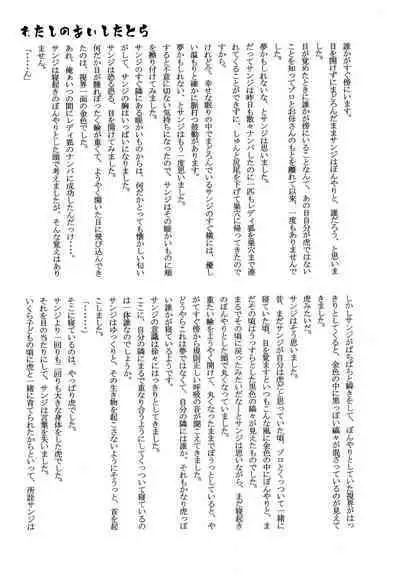 わたしのあいしたとら
誰かがすぐ傍にいます。
目を開けずにまどろんだままサンジはぼんやりと、誰だろう、と思いました。
目が覚めたときに誰かが傍にいることなんて、あの日自分が虎ではないことを知ってゾロとお母さんのもとを離れて以来、一度もありませんでした。
夢かもしれないな、とサンジは思いました。
だってサンジは昨日も散々ナンパしたのに一匹もレディ狐を巣穴まで連れてくることができずに、しゅんと尻尾を下げて巣穴に帰ってきたのです。
けれど、幸せな眠りの中でまどろんでいるサンジのすぐ横には、優しい温もりと確かに脈打つ鼓動があります。
夢かもしれない、とサンジはもう一度思いました。
すると不意に切ない気持ちになったので、サンジはその暖かいものに頬を擦り付けてみました。
サンジのすぐ隣にある暖かいものからは、何だかとっても懐かしい匂いがして、サンジの胸はいっぱいになりました。
サンジは恐る恐る、目を開けてみました。
何だか目が腫れぼったく瞼が重くて、ようやく開いた目に飛び込んできたのは、視界一面の金色でした。
あれ、俺あいつの間にレディ狐のナンパに成功したんだっけ……。
サンジは寝起きのぼんやりとした頭で考えましたが、そんな覚えはありません。
「……ん」
しかしサンジがぱちぱちと瞬きをして、ぼんやりとしていた視界がはっきりしてくると、金色の中に黒っぽい縞々が混ざっているのが見えてきました。
虎みたいだ。
サンジはそう思いました。
昔、まだサンジが自分は虎だと思っていた頃、ゾロとくっついて一緒に寝ていた頃、目を覚ますといつもこんな風に金色の中にぼんやりと、まだその頃はうっすらとした黒色の縞々が見えたものでした。
まるでその頃に戻ったみたいだなーとサンジは思いながら、まだ寝起きのぼんやりとした頭で丸くなっていました。
重たい瞼をようやく開けて、丸くなったままでぼうっとしていると、すぐ傍から規則正しい呼吸の音が聞こえてきました。
どうやらこれは夢ではなくて、自分の隣には誰か、それもかなり虎っぽい誰かが寝ているようです。
サンジの意識は徐々にはっきりとしてきました。
ここに、自分の隣にまるで重なり合うようにしてくっついて寝ているのは一体誰なのでしょうか。
サンジはゆっくりと、その生き物を起こさないようにそうっと、首を起こしました。
「……！」
そこに寝ているのは、やっぱり虎でした。
サンジより一回りも二回りも大きな身体をした虎でした。
それを目の当たりにして、サンジは言葉を失いました。
いくら子どもの頃に虎と一緒に育てられたからといって、所詮サンジは